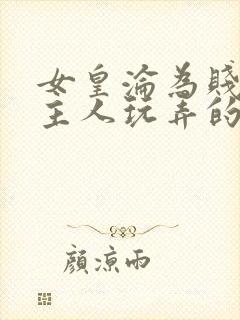 女皇淪為賤
主人玩弄的
顏涼雨